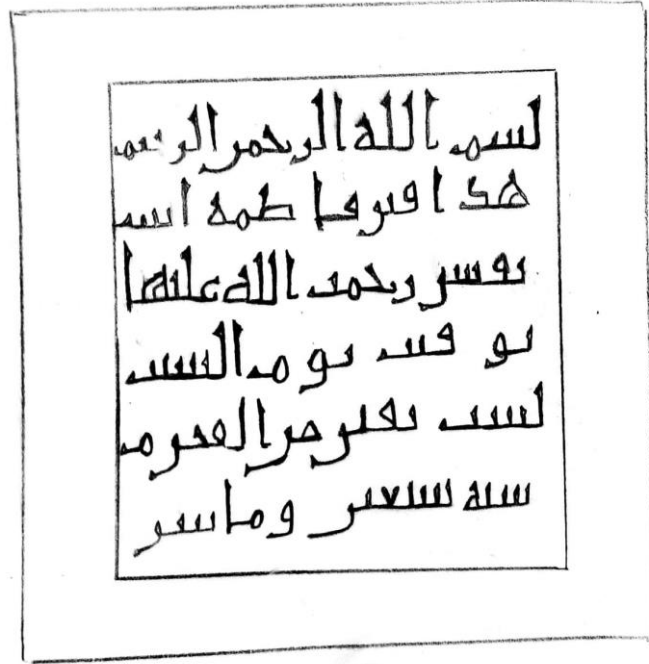 بسم الله الرحمن الرحيم
هذا قبر فاطمة ابنت
رحمت الله عليها
توفيت يوم السبت
لست بقين من المحرم
سنة ومائتين